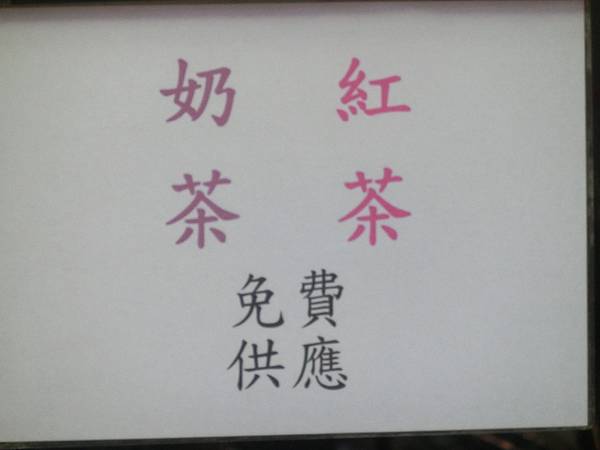 紅茶
奶茶
免費
供應